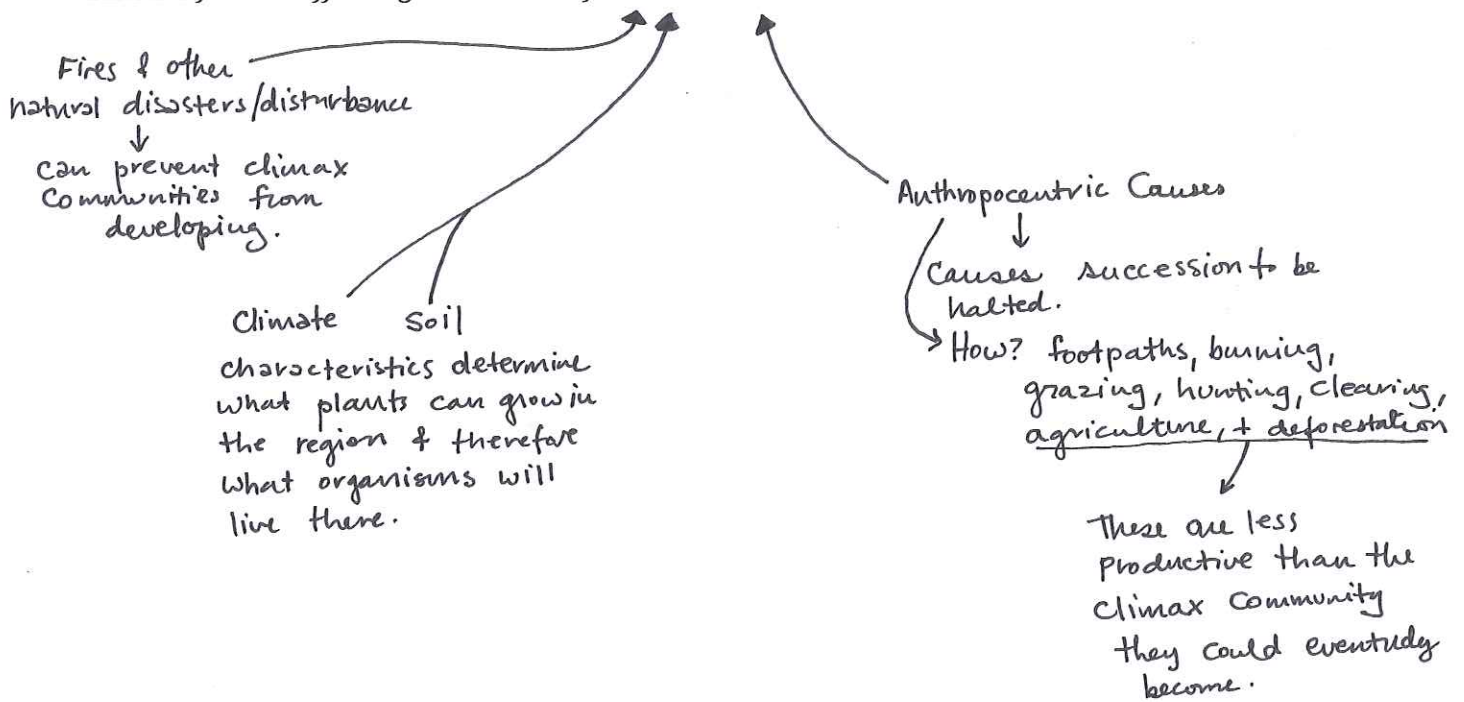 Fires & other
natural disasters/disturbance
↓
can prevent climax
communities from
developing.
Climate soil
characteristics determine
what plants can grow in
the region & therefore
what organisms will
live there.
Anthropocentric Causes
↓
Causes succession to be
halted.
How? footpaths, burning,
grazing, hunting, clearing,
agriculture, + deforestation
These are less
productive than the
climax community
they could eventudy
become.